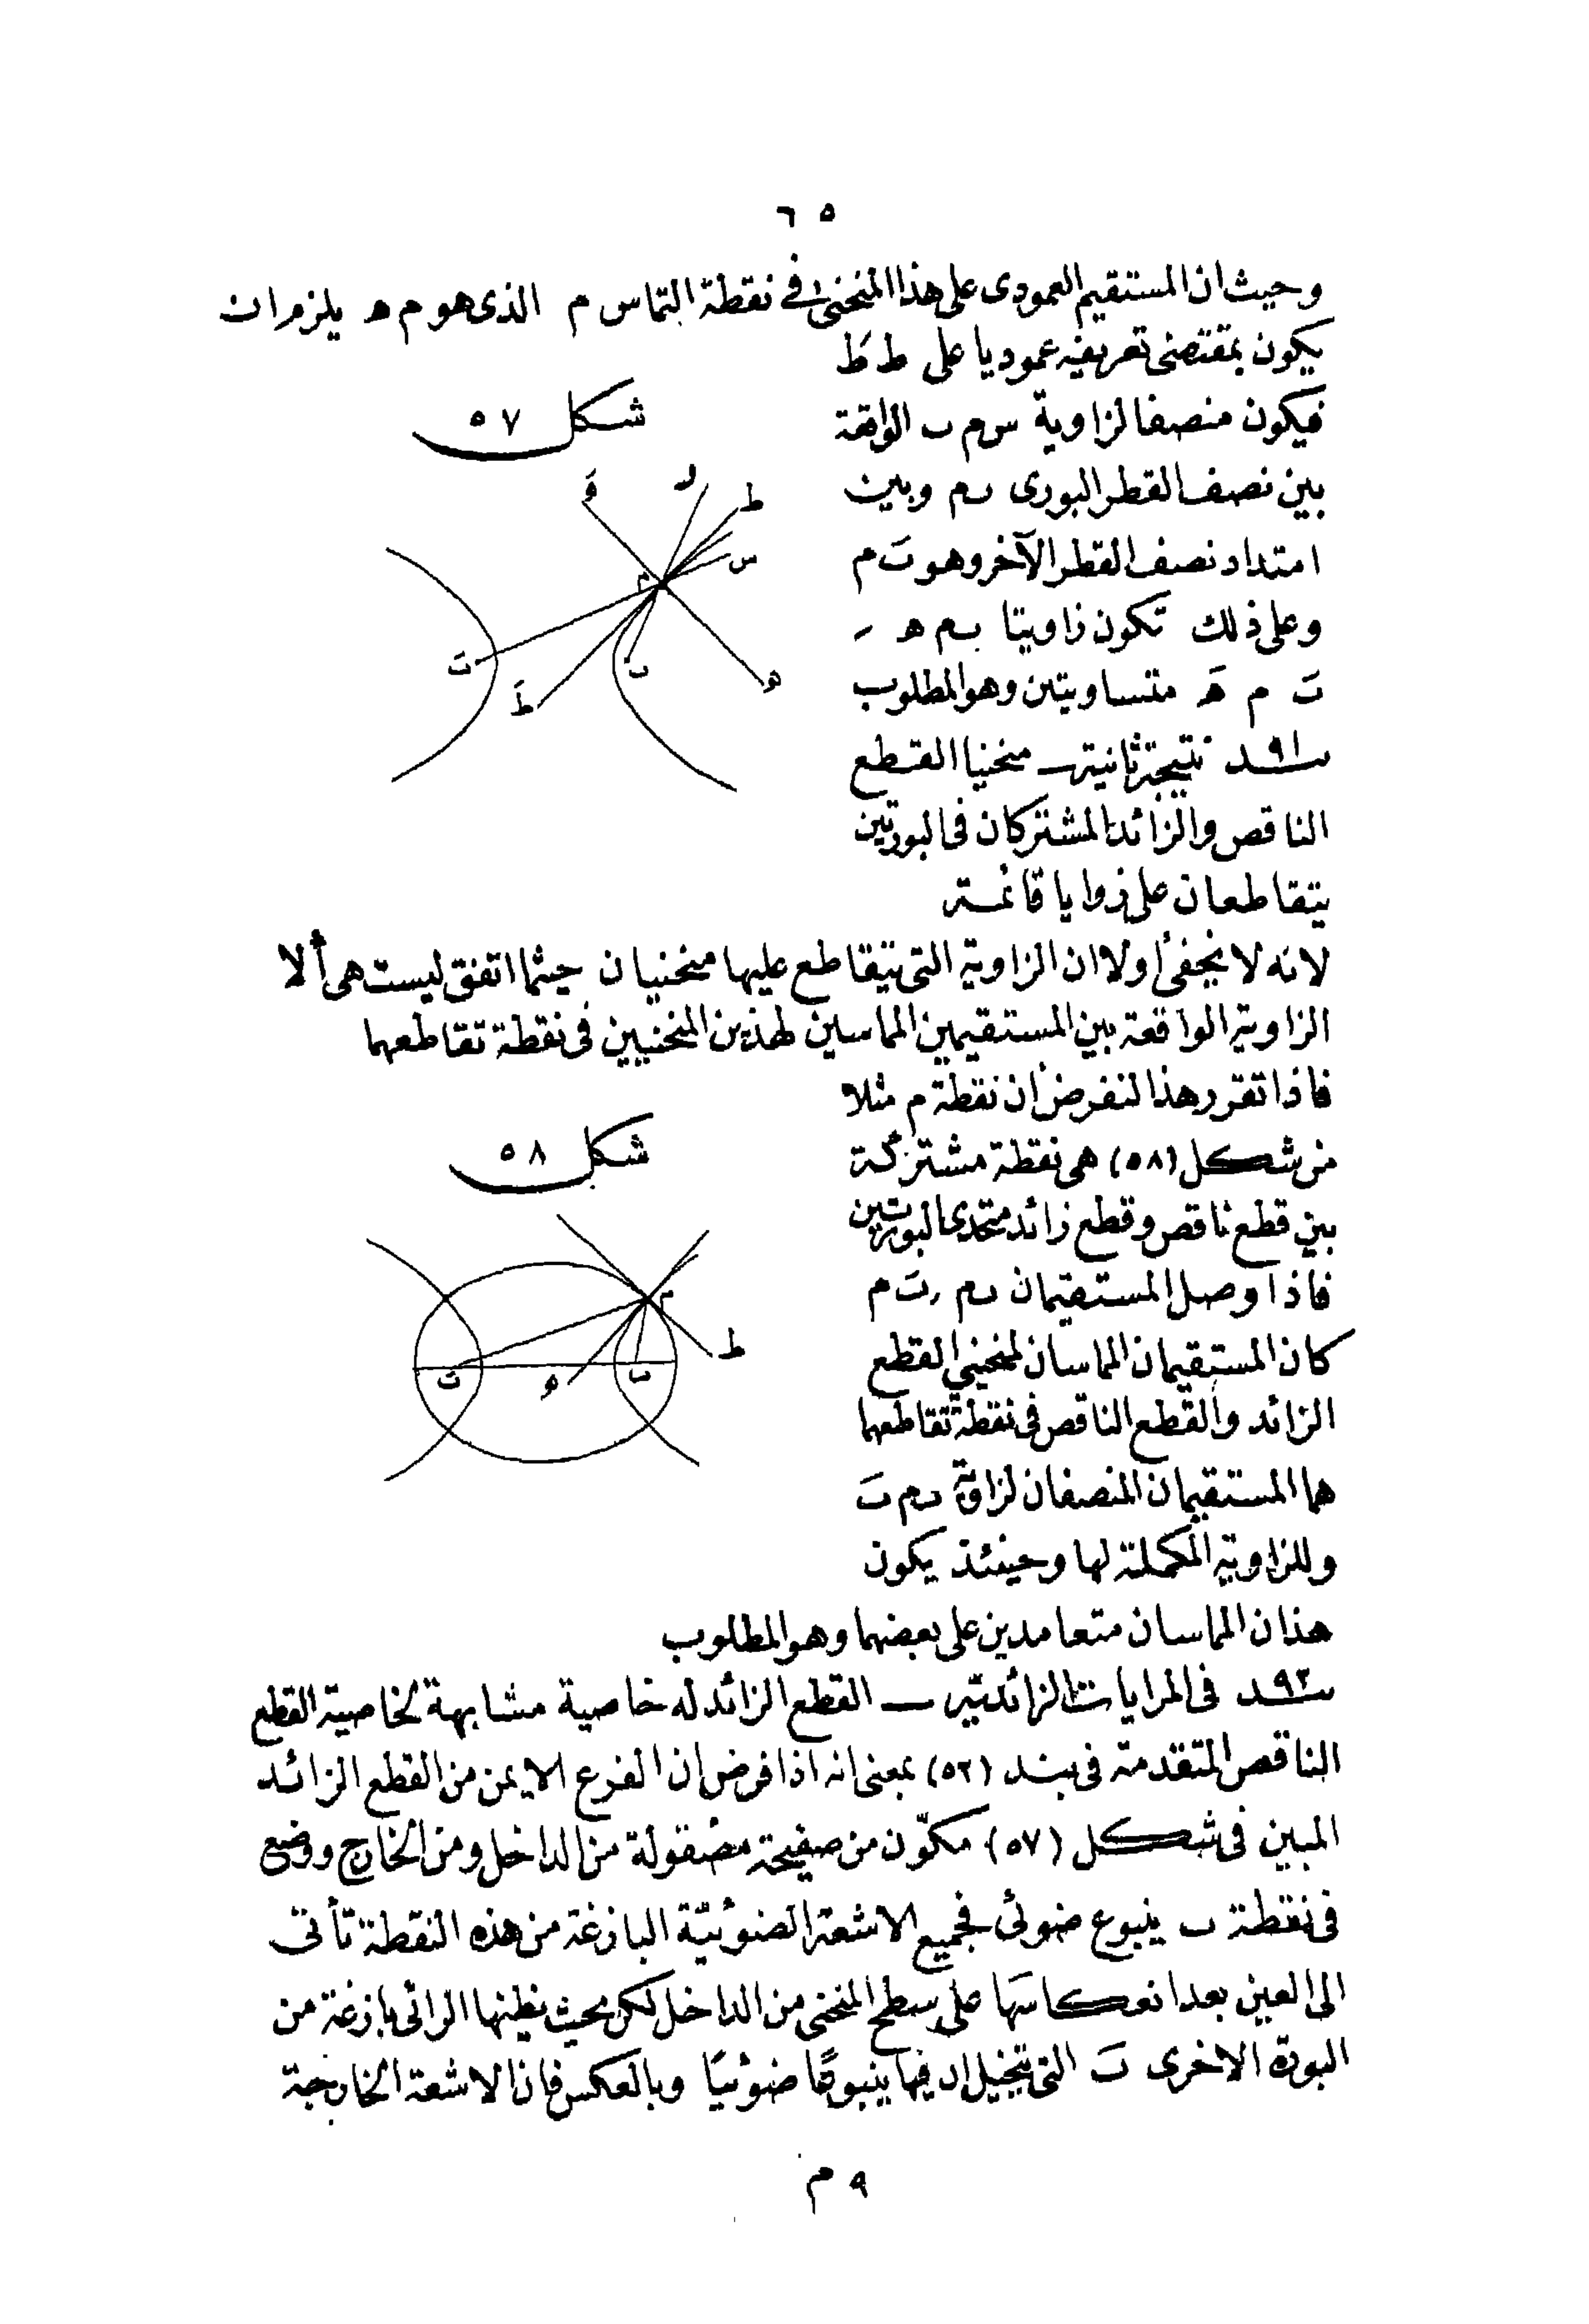 ٦٥
وحيث ان المستقيم العمودى على هذا المنحنى فى نقطة التماس م الذى هو م ه يلزم ان
يكون بمقتضى تعريفه عموديا على ط طَ
فيكون منصفا لزاوية س م ب الواقعة
بين نصف القطر البورى ب م وبين
امتداد نصف القطر الآخر وهو بَ م
وعلى ذلك تكون زاويتا ب م ه ر
بَ م هَ متساويتين وهو المطلوب
شكل ٥٧
هَ
ل
ط
س
م
بَ
ب
طَ
ه
بند ٩١ نتيجة ثانية ــ منحنيا القطع
الناقص والزائد المشتركان فى البورتين
يتقاطعان على زوايا قائمة
لانه لا يخفى أولا ان الزاوية التى يتقاطع عليها منحنيان حيثما اتفق ليست هى ألا
الزاوية الواقعة بين المستقيمين المماسين لهذين المنحنيين فى نقطة تقاطعهما
فاذا تقرر هذا لنفرض أن نقطة م مثلا
من شكل (٥٨) هى نقطة مشتركة
بين قطع ناقص وقطع زائد متحدى البورتين
فاذا وصل المستقيمان ب م ر بَ م
كان المستقيمان المماسان لمنحنيى القطع
الزائد والقطع الناقص فى نقطة تقاطعهما
هما المستقيمان المنصفان لزاوية ب م بَ
وللزاوية المكملة لها وحينئذ يكون
شكل ٥٨
م
ط
بَ
ه
ب
هذان المماسان متعامدين على بعضهما وهو المطلوب
بند ٩٢ فى المرايات الزائدية ــ القطع الزائد له خاصية مشابهة لخاصية القطع
الناقص المتقدمة فى بند (٥٢) بمعنى انه اذا فرض ان الفرع الايمن من القطع الزائد
المبين فى شكل (٥٧) مكوّن من صفيحة مصقولة من الداخل ومن الخارج ووضع
فى نقطة ب ينبوع ضوئى فجميع الاشعة الضوئيّة البازغة من هذه النقطة تأتى
الى العين بعد انعكاسها على سطح المنحنى من الداخل لكن بحيث يظنها الرائى بازغة من
البورة الاخرى بَ التى يتخيل ان فيها ينبوعًا ضوئيًا وبالعكس فان الاشعة الخارجة
٩ م